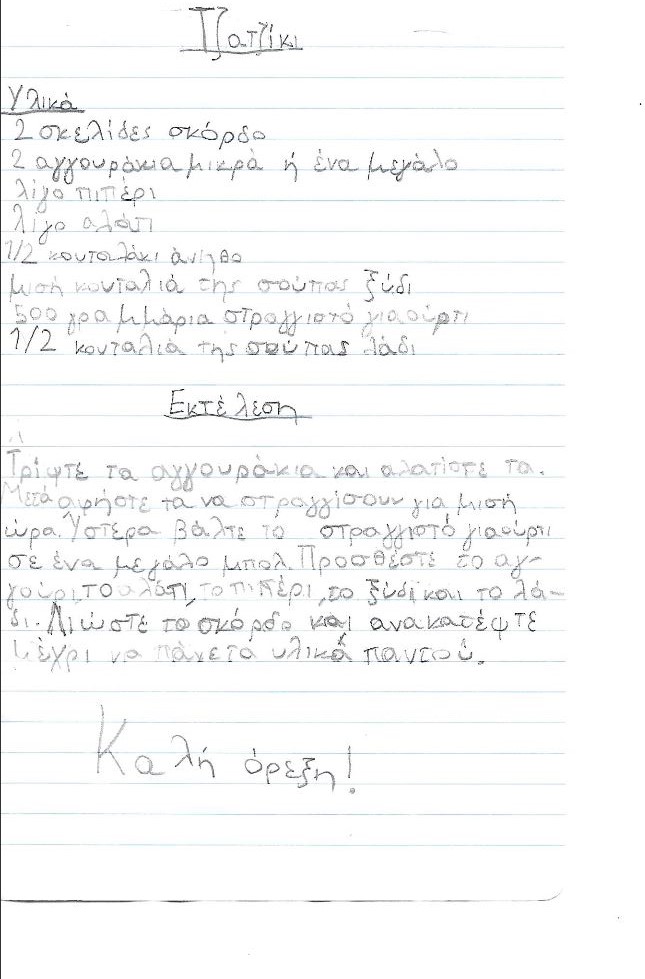 Τζατζίκι
Υλικά
2 σκελίδες σκόρδο
2 αγγουράκια μικρά ή ένα μεγάλο
λίγο πιπέρι
λίγο αλάτι
1/2 κουταλάκι άνιθο
μισή κουταλιά της σούπας ξύδι
500 γραμμάρια στραγγιστό γιαούρτι
1/2 κουταλιά της σούπας λάδι
Εκτέλεση
Τρίψτε τα αγγουράκια και αλατίστε τα.
Μετά αφήστε τα να στραγγίσουν για μισή
ώρα. Ύστερα βάλτε το στραγγιστό γιαούρτι
σε ένα μεγάλο μπολ. Προσθέστε το αγ-
γούρι, το αλάτι, το πιπέρι, το ξύδι και το λά-
δι. Λιώστε το σκόρδο και ανακατέψτε
μέχρι να πάνε τα υλικά παντού.
Καλή όρεξη!